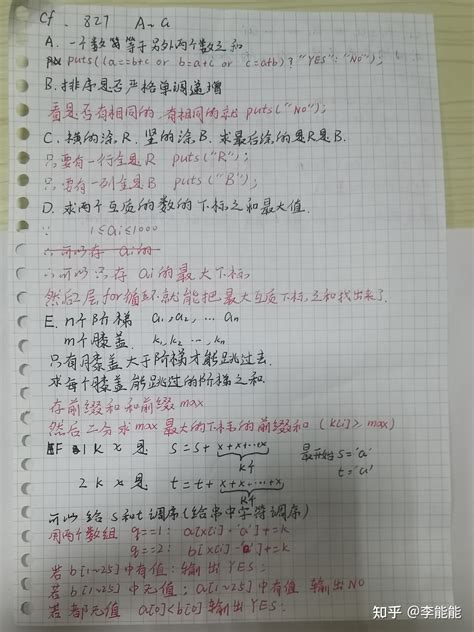 cf . 827 A~G
A. 一个数等于另外两个数之和
puts((a==b+c or b==a+c or c==a+b)?"YES":"NO");
B. 排序是否严格单调递增
看是否有相同的,有相同的就 puts("No");
C. 横的涂R, 竖的涂B. 求最后涂的是R是B.
只要有一行全是R puts("R");
只要有一列全是B puts("B");
D. 求两个互质的数的下标之和最大值.
∵ 1≤ai≤1000
∴可以存 ai的
∴可以只存 ai的最大下标,
然后2层for循环就能把最大互质下标之和找出来了.
E. n个阶梯 a₁,a₂, ... an
m个膝盖. k₁,k₂ ... kn
只有膝盖大于阶梯才能跳过去.
求每个膝盖能跳过的阶梯之和.
存前缀和和前缀max
然后二分求max最大的下标的前缀和 (k[i]≥max)
F 1 k x 是 s=s+x+x+...+x 最开始 s='a'
k个
2 k x 是 t=t+x+x...+x t='a'
k个
可以给s和t调序(给串中字符调序)
用两个数组 q==1: a[x[i]-'a']+=k
q==2: b[x[i]-'a']+=k
若b[1~25]中有值: 输出YES;
若b[1~25]中无值; a[1~25]中有值 输出NO
若都无值 a[0]<b[0] 输出YES;
知乎 @李能能